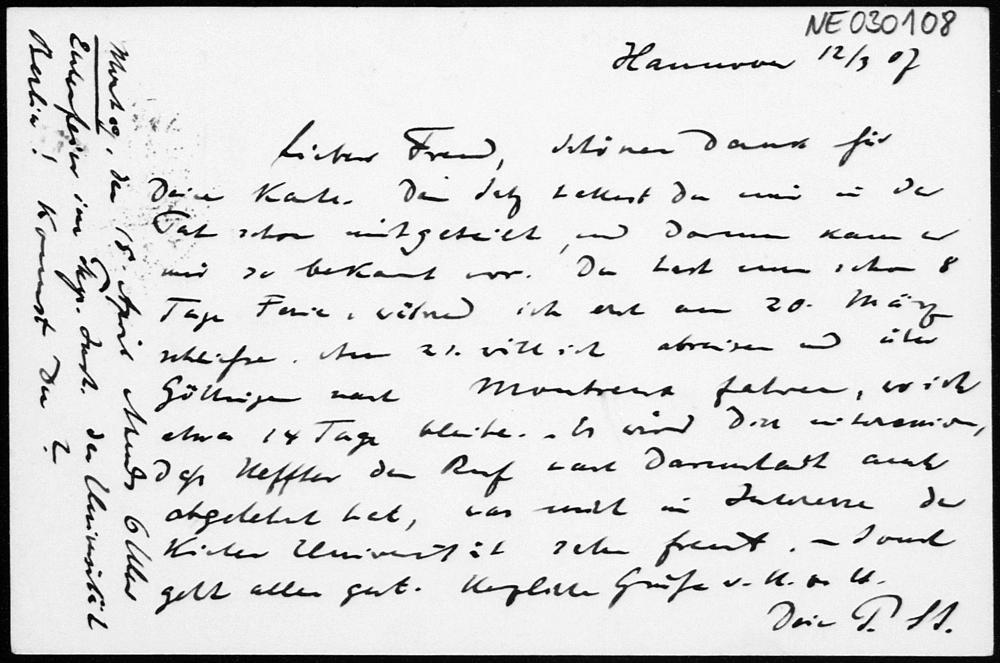 NE030108
Hannover 12/3 07
Lieber Freund, schönen Dank für
Deine Karte. Den Satz hattest Du mir in der
Tat schon mitgeteilt, und darum kam er
mir so bekannt vor. Du hast nun schon 8
Tage Ferien, während ich erst am 20. März
schließe. Am 21. will ich abreisen und über
Göttingen nach Montreux fahren, wo ich
etwa 14 Tage bleibe. – Es wird Dich interessieren,
daß Heffter den Ruf nach Darmstadt auch
abgelehnt hat, was mich im Interesse der
Kieler Universität sehr freut. – Sonst
geht alles gut. Herzliche Grüße v. H. z. H.
Dein P. St.
Montag, den 15. April Abends 6 Uhr
Eulerfeier im Phys. Inst. der Universität
Berlin! Kommst Du?